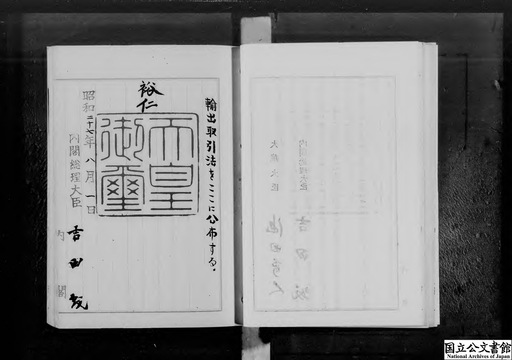 輸出取引法をここに公布する。
裕仁
天皇
御璽
昭和二十七年八月一日
内閣総理大臣
吉田茂
内閣
大蔵大臣
国立公文書館
National Archives of Japan